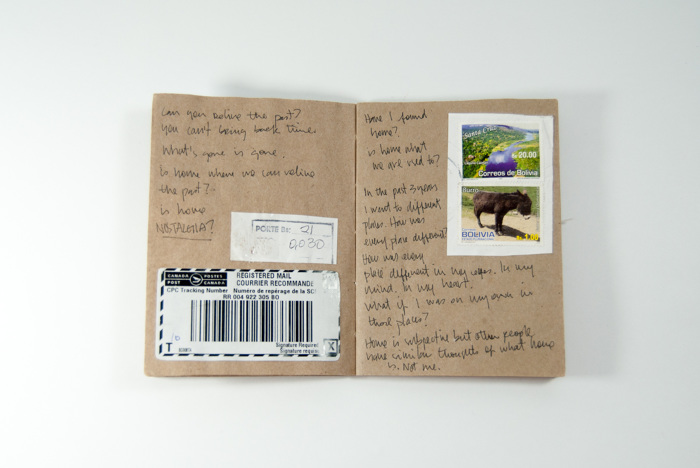 Can you relive the past?
You can't bring back time.
What's gone is gone.
Is home where we can relive
the past?
Is home
NOSTALGIA?
PORTE Bs: 21
0030
CANADA POSTES
POST CANADA
REGISTERED MAIL
COURRIER RECOMMANDE
CPC Tracking Number Numéro de repérage de la SC
RR 004 922 305 BO
Signature Required
Signature requise
T
X
Have I found
home?
Is home what
we are used to?
In the past 3 years
I went to different
places. How was
every place different?
How was every
place different in my eyes. In my
mind. In my heart.
What if I was on my own in
those places?
Home is subjective but other people
have similar thoughts of what home
is. Not me.
Santa Cruz
Bs. 20.00
Correos de Bolivia
Burro
BOLIVIA
Bs. 1.00